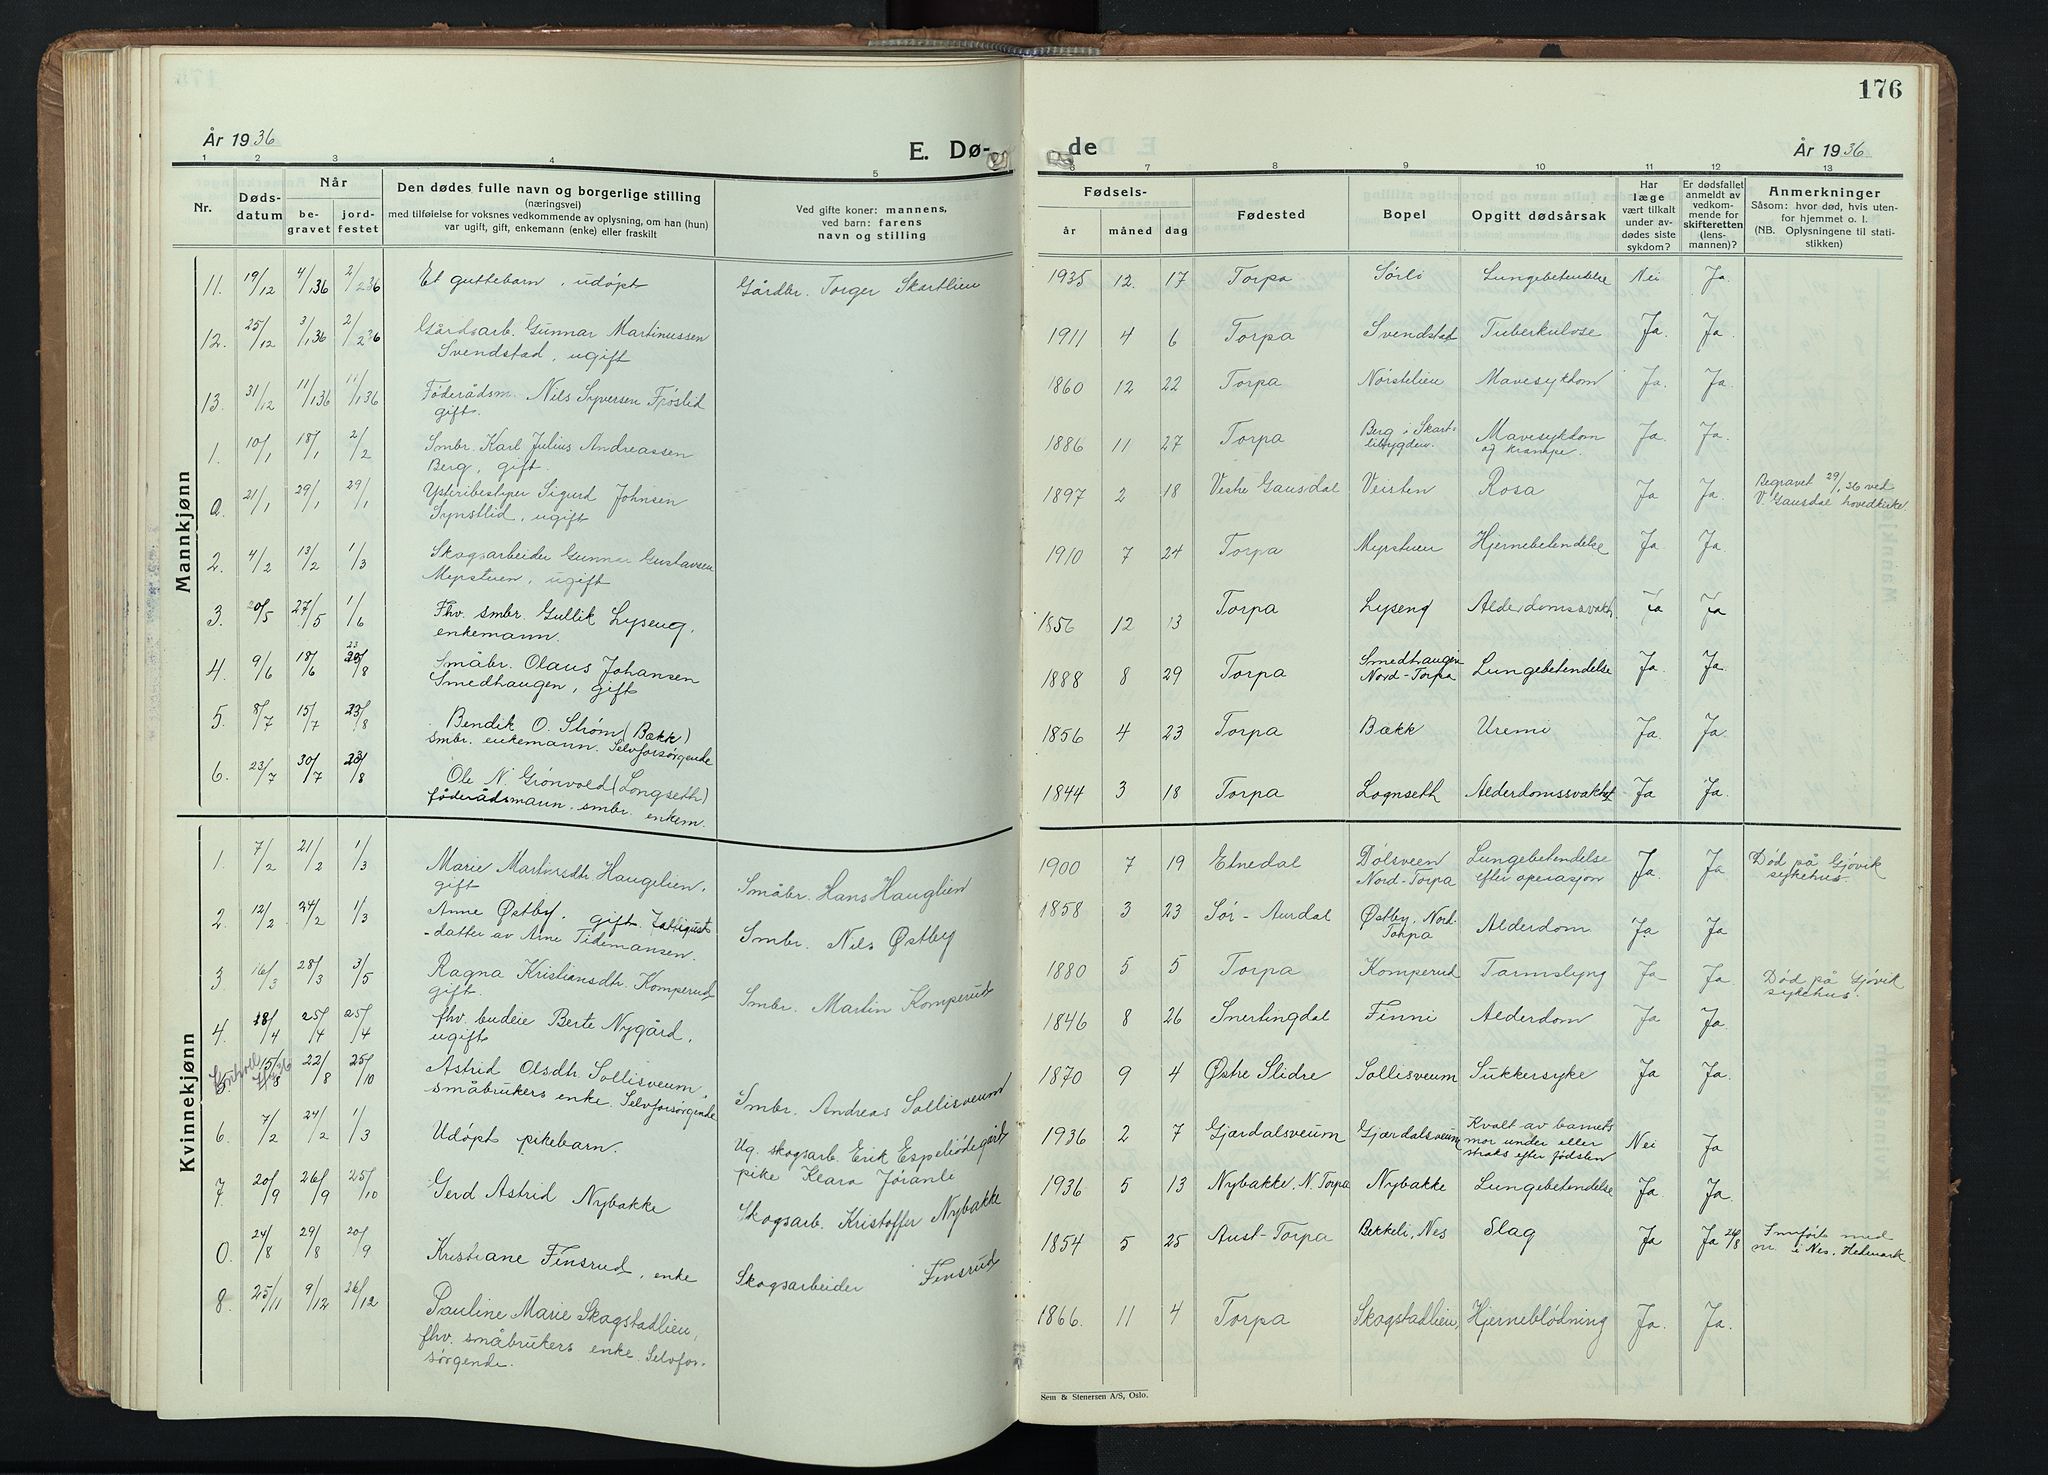 176
År 1936
E. Dø-
de
År 1936
1 2 3 4 5 6 7 8 9 10 11 12 13
Nr.
Døds-
datum
Når
be-
gravet
jord-
festet
Den dødes fulle navn og borgerlige stilling
(næringsvei)
med tilføielse for voksnes vedkommende av oplysning, om han (hun)
var ugift, gift, enkemann (enke) eller fraskilt
Ved gifte koner: mannens,
ved barn: farens
navn og stilling
Fødsels-
år måned dag
Fødested
Bopel
Opgitt dødsårsak
Har
læge
vært tilkalt
under av-
dødes siste
sykdom?
Er dødsfallet
anmeldt av
vedkom-
mende for
skifteretten
(lens-
mannen)?
Anmerkninger
Såsom: hvor død, hvis uten-
for hjemmet o. l.
(NB. Oplysningene til stati-
stikken)
Mannkjønn
11. 19/12 4/1 36 2/2 36 Et guttebarn, udøpt Gårdbr. Torger Skartlien 1935 12. 17 Torpa Sørli Lungebetendelse Nei Ja.
12. 25/12 3/1 36 2/2 36 Gårdsarb. Gunnar Martinussen 1911 4 6 Torpa Svendstad Tuberkulose Ja. Ja.
Svendstad, ugift
13. 31/12 11/1 36 11/1 36 Føderådsm. Nils Syversen Frøslid 1860 12 22 Torpa Nørstelien Mavesykdom Ja. Ja.
gift.
1. 10/1 18/1 2/2 Smbr. Karl Julius Andreassen 1886 11 27 Torpa Berg i Skart- Mavesykdom Ja. Ja.
Berg, gift. libygden. og krampe.
0. 21/1 29/1 29/1 Ysteribestyrer Sigurd Johnsen 1897 2 18 Vestre Gausdal Veisten Rosa Ja Ja. Begravet 29/1 36 ved
Synstlid, ugift V. Gausdal hovedkirke.
2. 4/2 13/2 1/3 Skogsarbeider Gunnar Gustavsen 1910 7 24 Torpa Myrstuen Hjernebetendelse Ja Ja.
Myrstuen, ugift
3. 20/5 27/5 1/6 Fhv. smbr. Gullik Lyseng, 1856 12 13 Torpa Lyseng Alderdomssvakh. Ja Ja
enkemann.
4. 9/6 18/6 23/8 Småbr. Olaus Johansen 1888 8 29 Torpa Smedhaugen Lungebetendelse Ja. Ja.
Smedhaugen, gift Nord-Torpa
5. 8/7 15/7 23/8 Bendik O. Strøm (Bækk) 1856 4 23 Torpa Bækk Uremi Ja. Ja.
smbr. enkemann. Selvforsørgende
6. 23/7 30/7 23/8 Ole N. Grønvold (Longseth) 1844 3 18 Torpa Lognseth Alderdomssvakhet Ja Ja.
føderådsmann. smbr. enkem.
Kvinnekjønn
1. 7/2 21/2 1/3 Marie Martinsdtr. Haugelien, Småbr. Hans Hauglien 1900 7 19 Etnedal Dølsveen Lungebetendelse Ja. Ja Død på Gjøvik
gift Nord-Torpa efter operasjon sykehus.
2. 12/2 24/2 1/3 Anne Østby. gift. Smbr. Nils Østby 1858 3 23 Sør-Aurdal Østby, Nord- Alderdom Ja Ja
-datter av Arne Tidemansen. Torpa
3. 16/3 28/3 3/5 Ragna Kristiansdtr. Komperud Smbr. Martin Komperud 1880 5 5 Torpa Komperud Tarmslyng Ja Ja. Død på Gjøvik
gift. sykehus.
4. 18/4 25/4 25/4 fhv. budeie Berte Nygård, 1846 8 26 Snertingdal Finni Alderdom Ja Ja.
ugift
5. 15/8 22/8 25/10 Astrid Olsdtr. Sollisveum, Smbr. Andreas Sollisveum 1870 9 4 Østre Slidre Sollisveum Sukkersyke Ja Ja.
småbrukers enke. Selvforsørgende
6. 7/2 24/2 1/3 Udøpt pikebarn. Ug. skogsarb. Erik Espeliødegård 1936 2 7 Gjærdalsveum Gjærdalsveum Kvalt av barnets Nei Ja
pike Klara Jøranli mor under eller
straks efter fødslen
7. 20/9 26/9 25/10 Gerd Astrid Nybakke Skogsarb. Kristoffer Nybakke 1936 5 13 Nybakke, N. Torpa Nybakke Lungebetendelse Ja Ja.
0. 24/8 29/8 20/9 Kristiane Finsrud, enke Skogsarbeider Finsrud 1854 5 25 Aust-Torpa Bekkeli, Nes Slag Ja Ja 26/8 Innført med
nr. i Nes, Hedmark
8. 25/11 9/12 26/12 Pauline Marie Skogstadlien, 1866. 11 4 Torpa Skogstadlien, Hjerneblødning Ja. Ja.
fhv. småbrukers enke. Selvfor-
sørgende.
Sem & Stenersen A/S, Oslo.